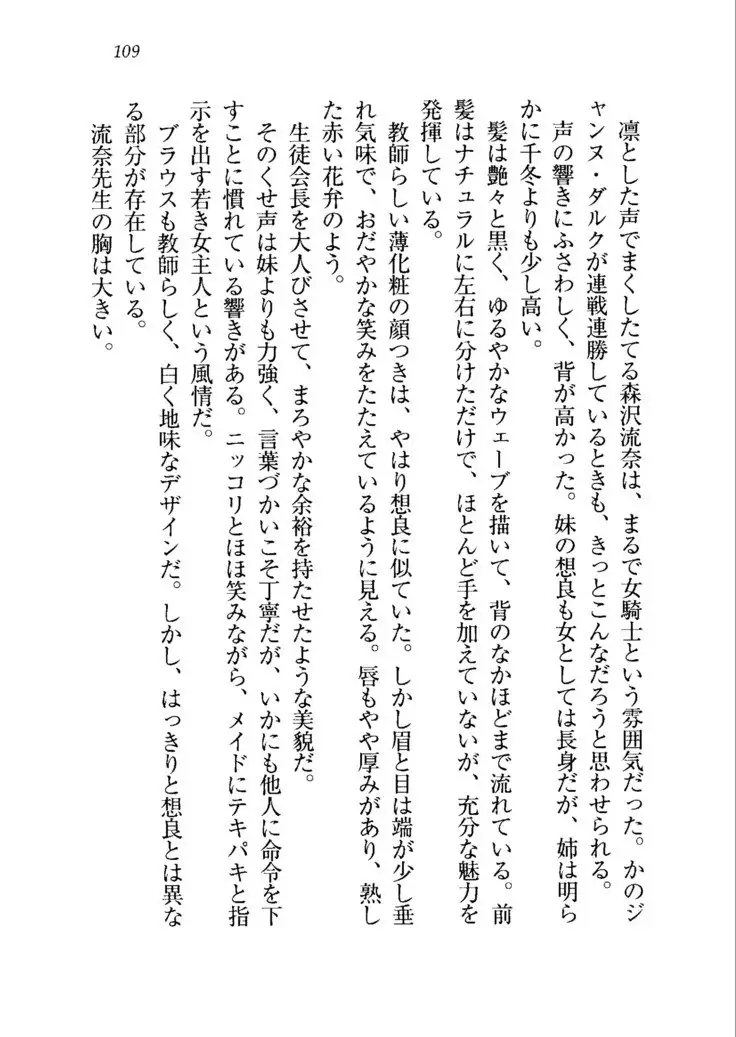 109
凛とした声でまくしたてる森沢流奈は、まるで女騎士という雰囲気だった。かのジ
ャンヌ・ダルクが連戦連勝しているときも、きっとこんなだろうと思わせられる。
声の響きにふさわしく、背が高かった。妹の想良も女としては長身だが、姉は明ら
かに千冬よりも少し高い。
髪は艶々と黒く、ゆるやかなウェーブを描いて、背のなかほどまで流れている。前
髪はナチュラルに左右に分けただけで、ほとんど手を加えていないが、充分な魅力を
発揮している。
教師らしい薄化粧の顔つきは、やはり想良に似ていた。しかし眉と目は端が少し垂
れ気味で、おだやかな笑みをたたえているように見える。唇もやや厚みがあり、熟し
た赤い花弁のよう。
生徒会長を大人びさせて、まろやかな余裕を持たせたような美貌だ。
そのくせ声は妹よりも力強く、言葉づかいこそ丁寧だが、いかにも他人に命令を下
すことに慣れている響きがある。ニッコリとほほ笑みながら、メイドにテキパキと指
示を出す若き女主人という風情だ。
ブラウスも教師らしく、白く地味なデザインだ。しかし、はっきりと想良とは異な
る部分が存在している。
流奈先生の胸は大きい。